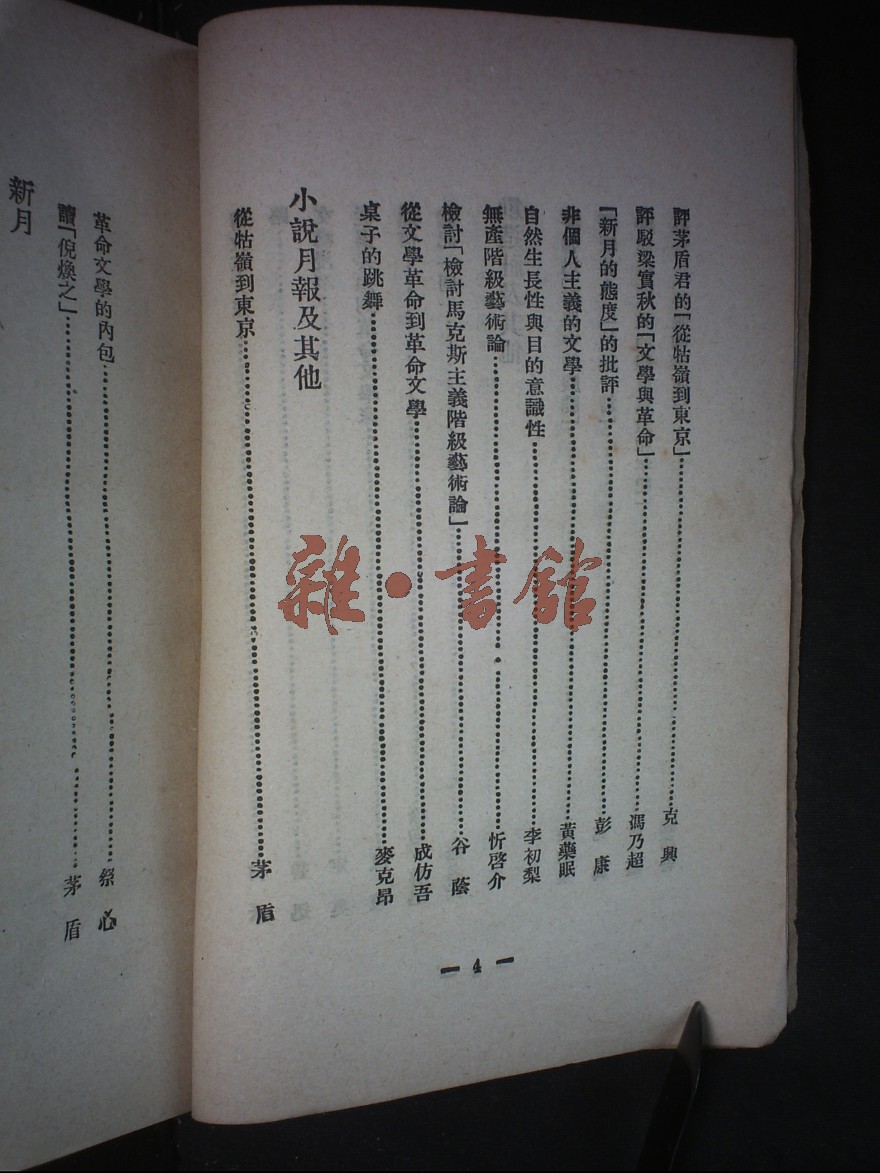 評茅盾君的「從牯嶺到東京」……克興
評駁梁實秋的「文學與革命」……馮乃超
「新月的態度」的批評……彭康
非個人主義的文學……黃藥眠
自然生長性與目的意識性……李初梨
無產階級藝術論……忻啓介
檢討「檢討馬克斯主義階級藝術論」……谷蔭
從文學革命到革命文學……成仿吾
桌子的跳舞……麥克昂
小說月報及其他
從牯嶺到東京……茅盾
— 4 —
革命文學的內包……祭心
讀「倪煥之」……茅盾
新月
雜·書館